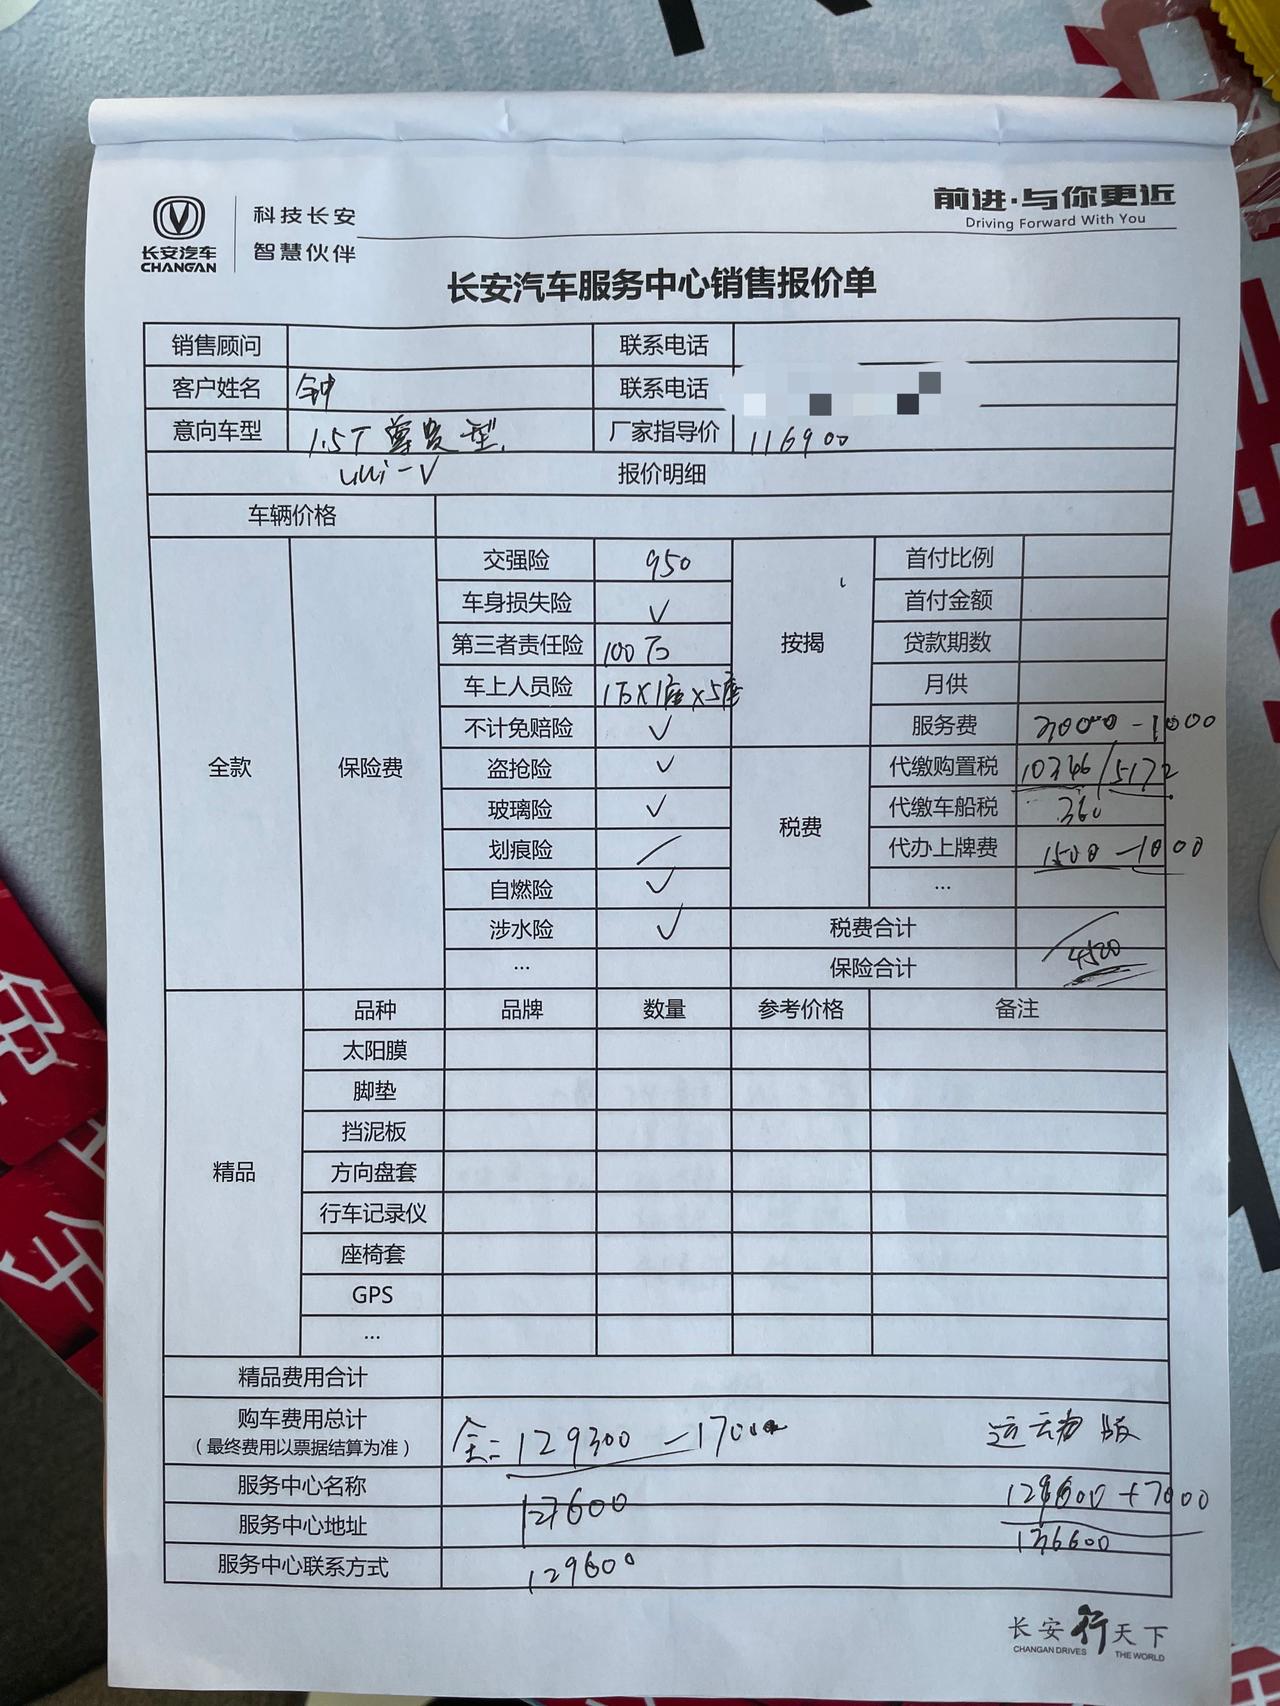 长安汽车
CHANGAN
科技长安
智慧伙伴
前进·与你更近
Driving Forward With You
长安汽车服务中心销售报价单
销售顾问 联系电话
客户姓名 钟 联系电话
意向车型 1.5T 尊贵型 厂家指导价 116900
uni-V 报价明细
车辆价格
全款 保险费 按揭 税费
交强险 950 首付比例
车身损失险 ✓ 首付金额
第三者责任险 100万 贷款期数
车上人员险 1万×1座×5座 月供
不计免赔险 ✓ 服务费 3000-1000
盗抢险 ✓ 代缴购置税 10346/5172
玻璃险 ✓ 代缴车船税 360
划痕险 代办上牌费 1500-1000
自燃险 ✓ …
涉水险 ✓ 税费合计
… 保险合计 4520
精品 品种 品牌 数量 参考价格 备注
太阳膜
脚垫
挡泥板
方向盘套
行车记录仪
座椅套
GPS
…
精品费用合计
购车费用总计 全: 129300-1700 运动版
（最终费用以票据结算为准）
服务中心名称 127600 129600+7000
服务中心地址 136600
服务中心联系方式 129600
长安行天下
CHANGAN DRIVES THE WORLD